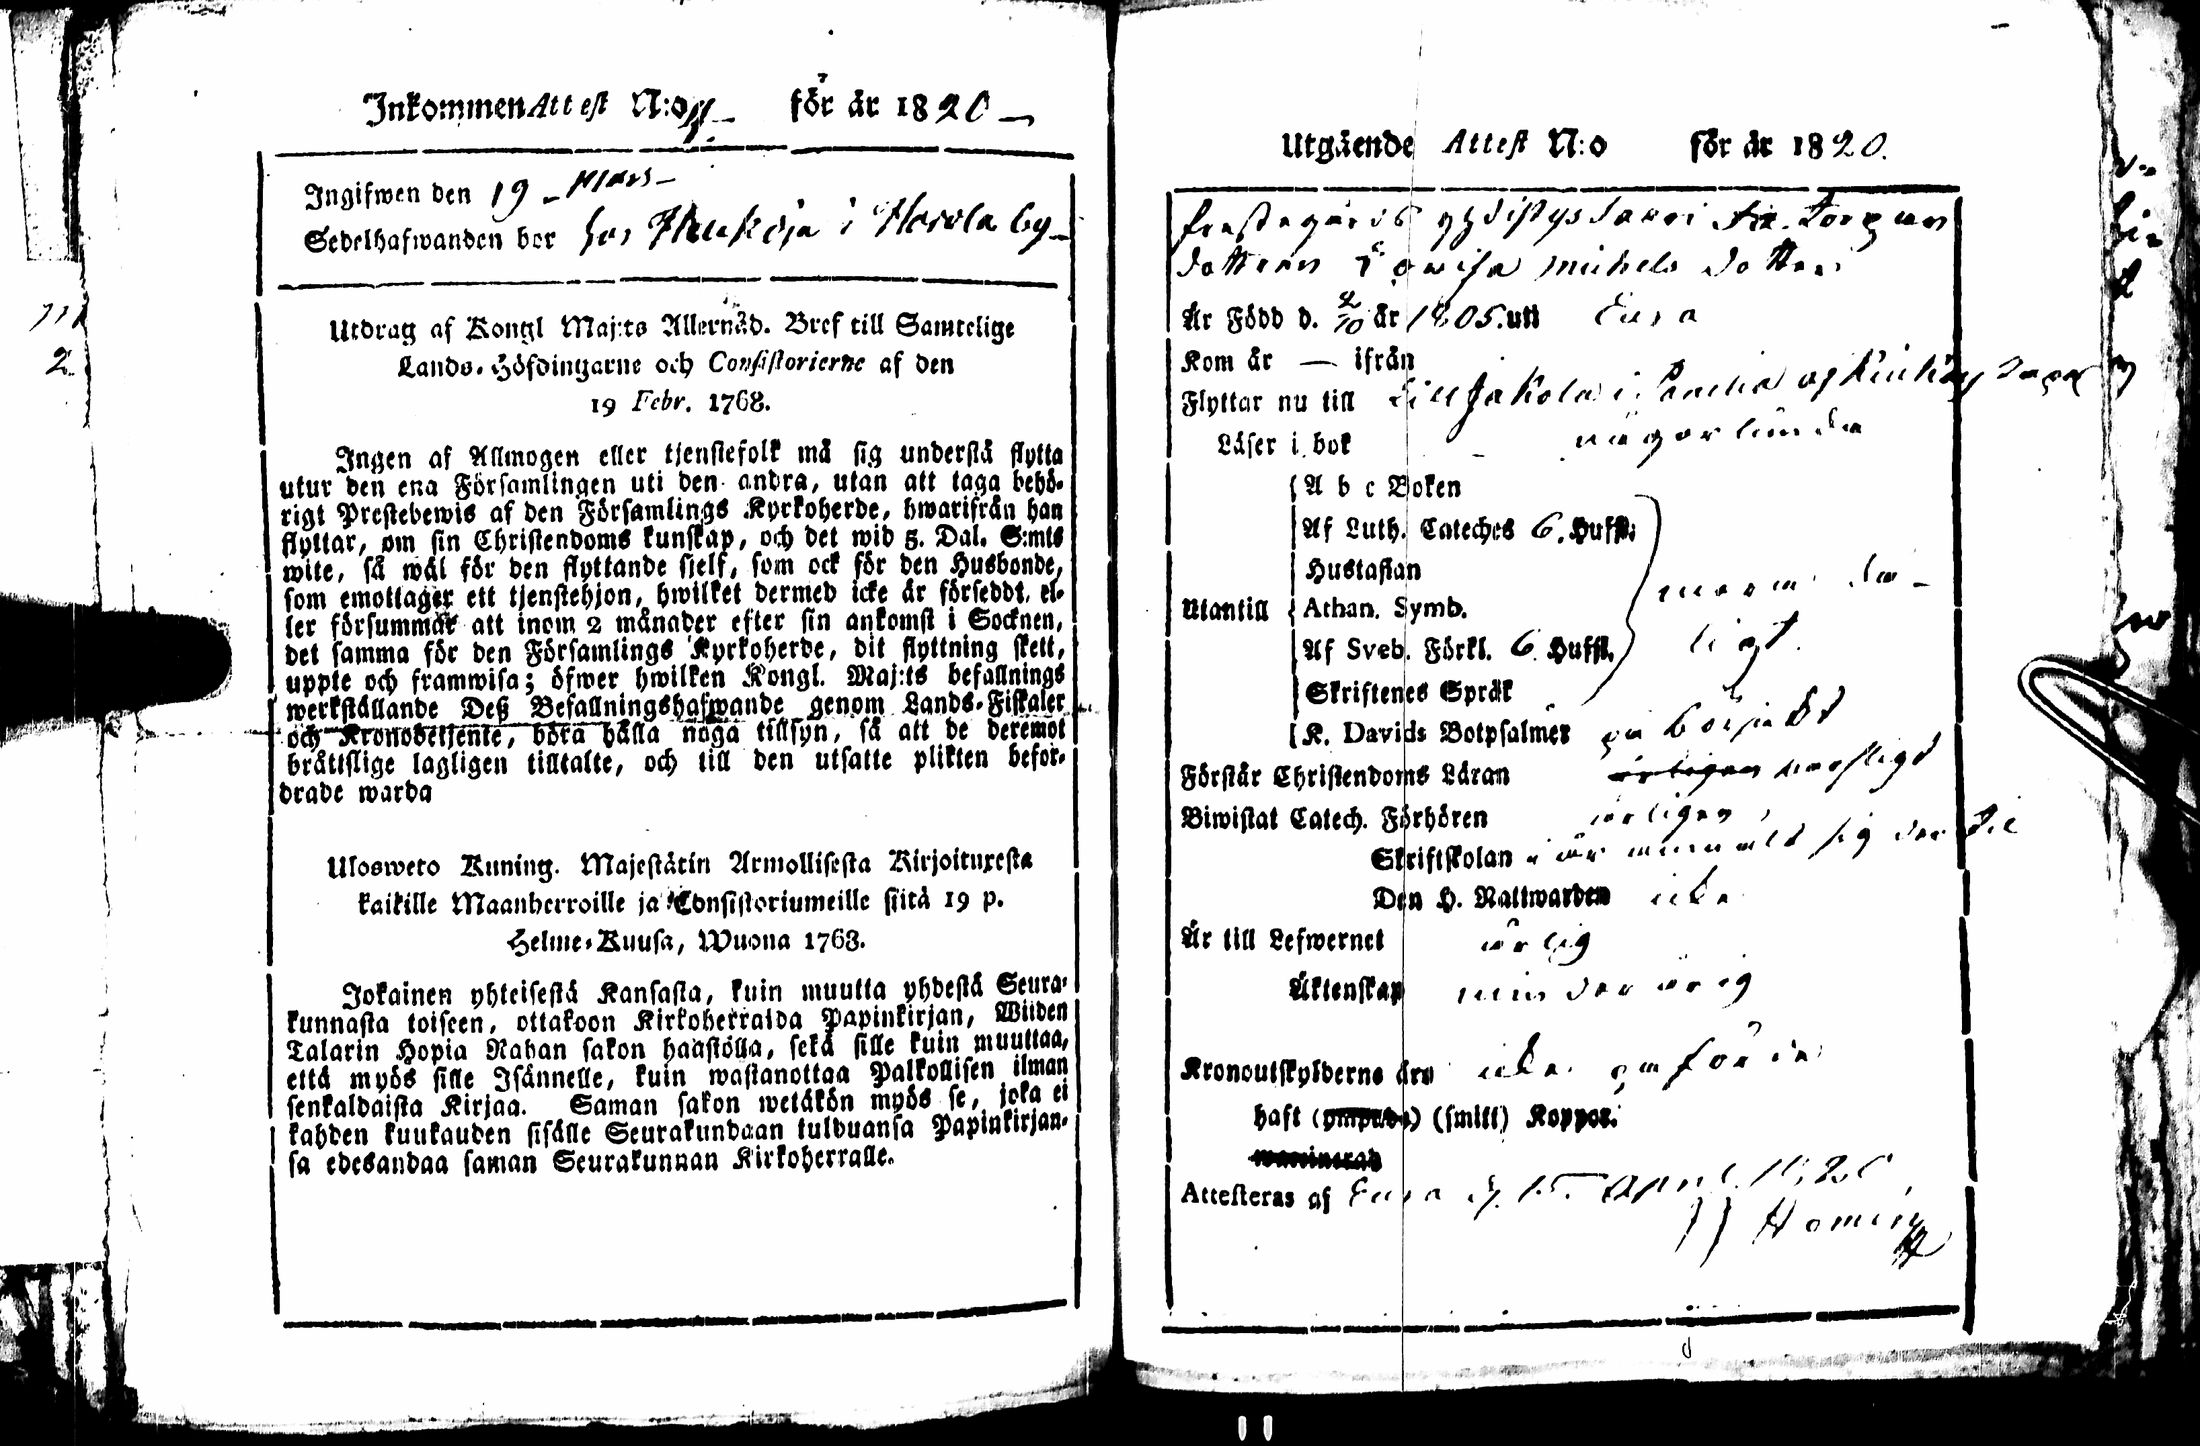 Inkommen Attest N:o för år 1820
Ingifwen den 19 Mars
Sedelhafwanden bor hos i by
Utdrag af Kongl Maj:ts Allernåd. Bref till Samtelige
Lands-Höfdingarne och Consistorierne af den
19 Febr. 1768.
Ingen af Allmogen eller tjenstefolk må sig understå flytta
utur den ena Församlingen uti den andra, utan att taga behö-
rigt Prestebewis af den Församlings Kyrkoherde, hwarifrån han
flyttar, om sin Christendoms kunskap, och det wid 5. Dal. S:mts
wite, så wäl för den flyttande sjelf, som ock för den Husbonde,
som emottager ett tjenstehjon, hwilket dermed icke är försedt, el-
ler försummar att inom 2 månader efter sin ankomst i Socknen,
det samma för den Församlings Kyrkoherde, dit flyttning skett,
uppte och framwisa; öfwer hwilken Kongl. Maj:ts befallnings
werkställande Deß Befallningshafwande genom Lands-Fiskaler
och Kronobetjente, böra hålla noga tillsyn, så att de deremot
bråttslige lagligen tilltalte, och till den utsatte plikten befor-
drade warda
Ulosweto Kuning. Majestätin Armollisesta Kirjoituxesta
kaikille Maanherroille ja Consistoriumeille siitä 19 p.
Helme-Kuusa, Wuona 1768.
Jokainen yhteisestä Kansasta, kuin muutta yhdestä Seura-
kunnasta toiseen, ottakoon Kirkoherralda Papinkirjan, Wiiden
Talarin Hopia Rahan sakon haastolla, sekä sille kuin muuttaa,
että myös sille Isännelle, kuin wastanottaa Palkollisen ilman
senkaldaista Kirjaa. Saman sakon wetäkön myös se, joka ei
kahden kuukauden sisälle Seurakundaan tulduansa Papinkirjan-
sa edesandaa saman Seurakunnan Kirkoherralle.
Utgående Attest N:o för år 1820.
dottren Lowisa Michels dotter
Är Född d. 2/10 år 1805. uti Eura
Kom år — ifrån
Flyttar nu till i
Läser i bok någorlunda
A b c Boken
Af Luth. Cateches 6. Huffst.
Hustaflan
Utantill Athan. Symb.
Af Sveb. Förkl. 6. Huffst.
ligt.
Skriftenes Språk
K. Davids Botpsalmer påbörjadt
Förstår Christendoms Läran
Biwistat Catech. Förhören årligen
Skriftskolan i år anmält sig der til
Den H. Nattwarden icke
Är till Lefwernet ärlig
Äktenskap minderårig
Kronoutskylderne äro icke påförde
haft (smitt) Koppor.
Attesteras af Eura d. 15 April 1820